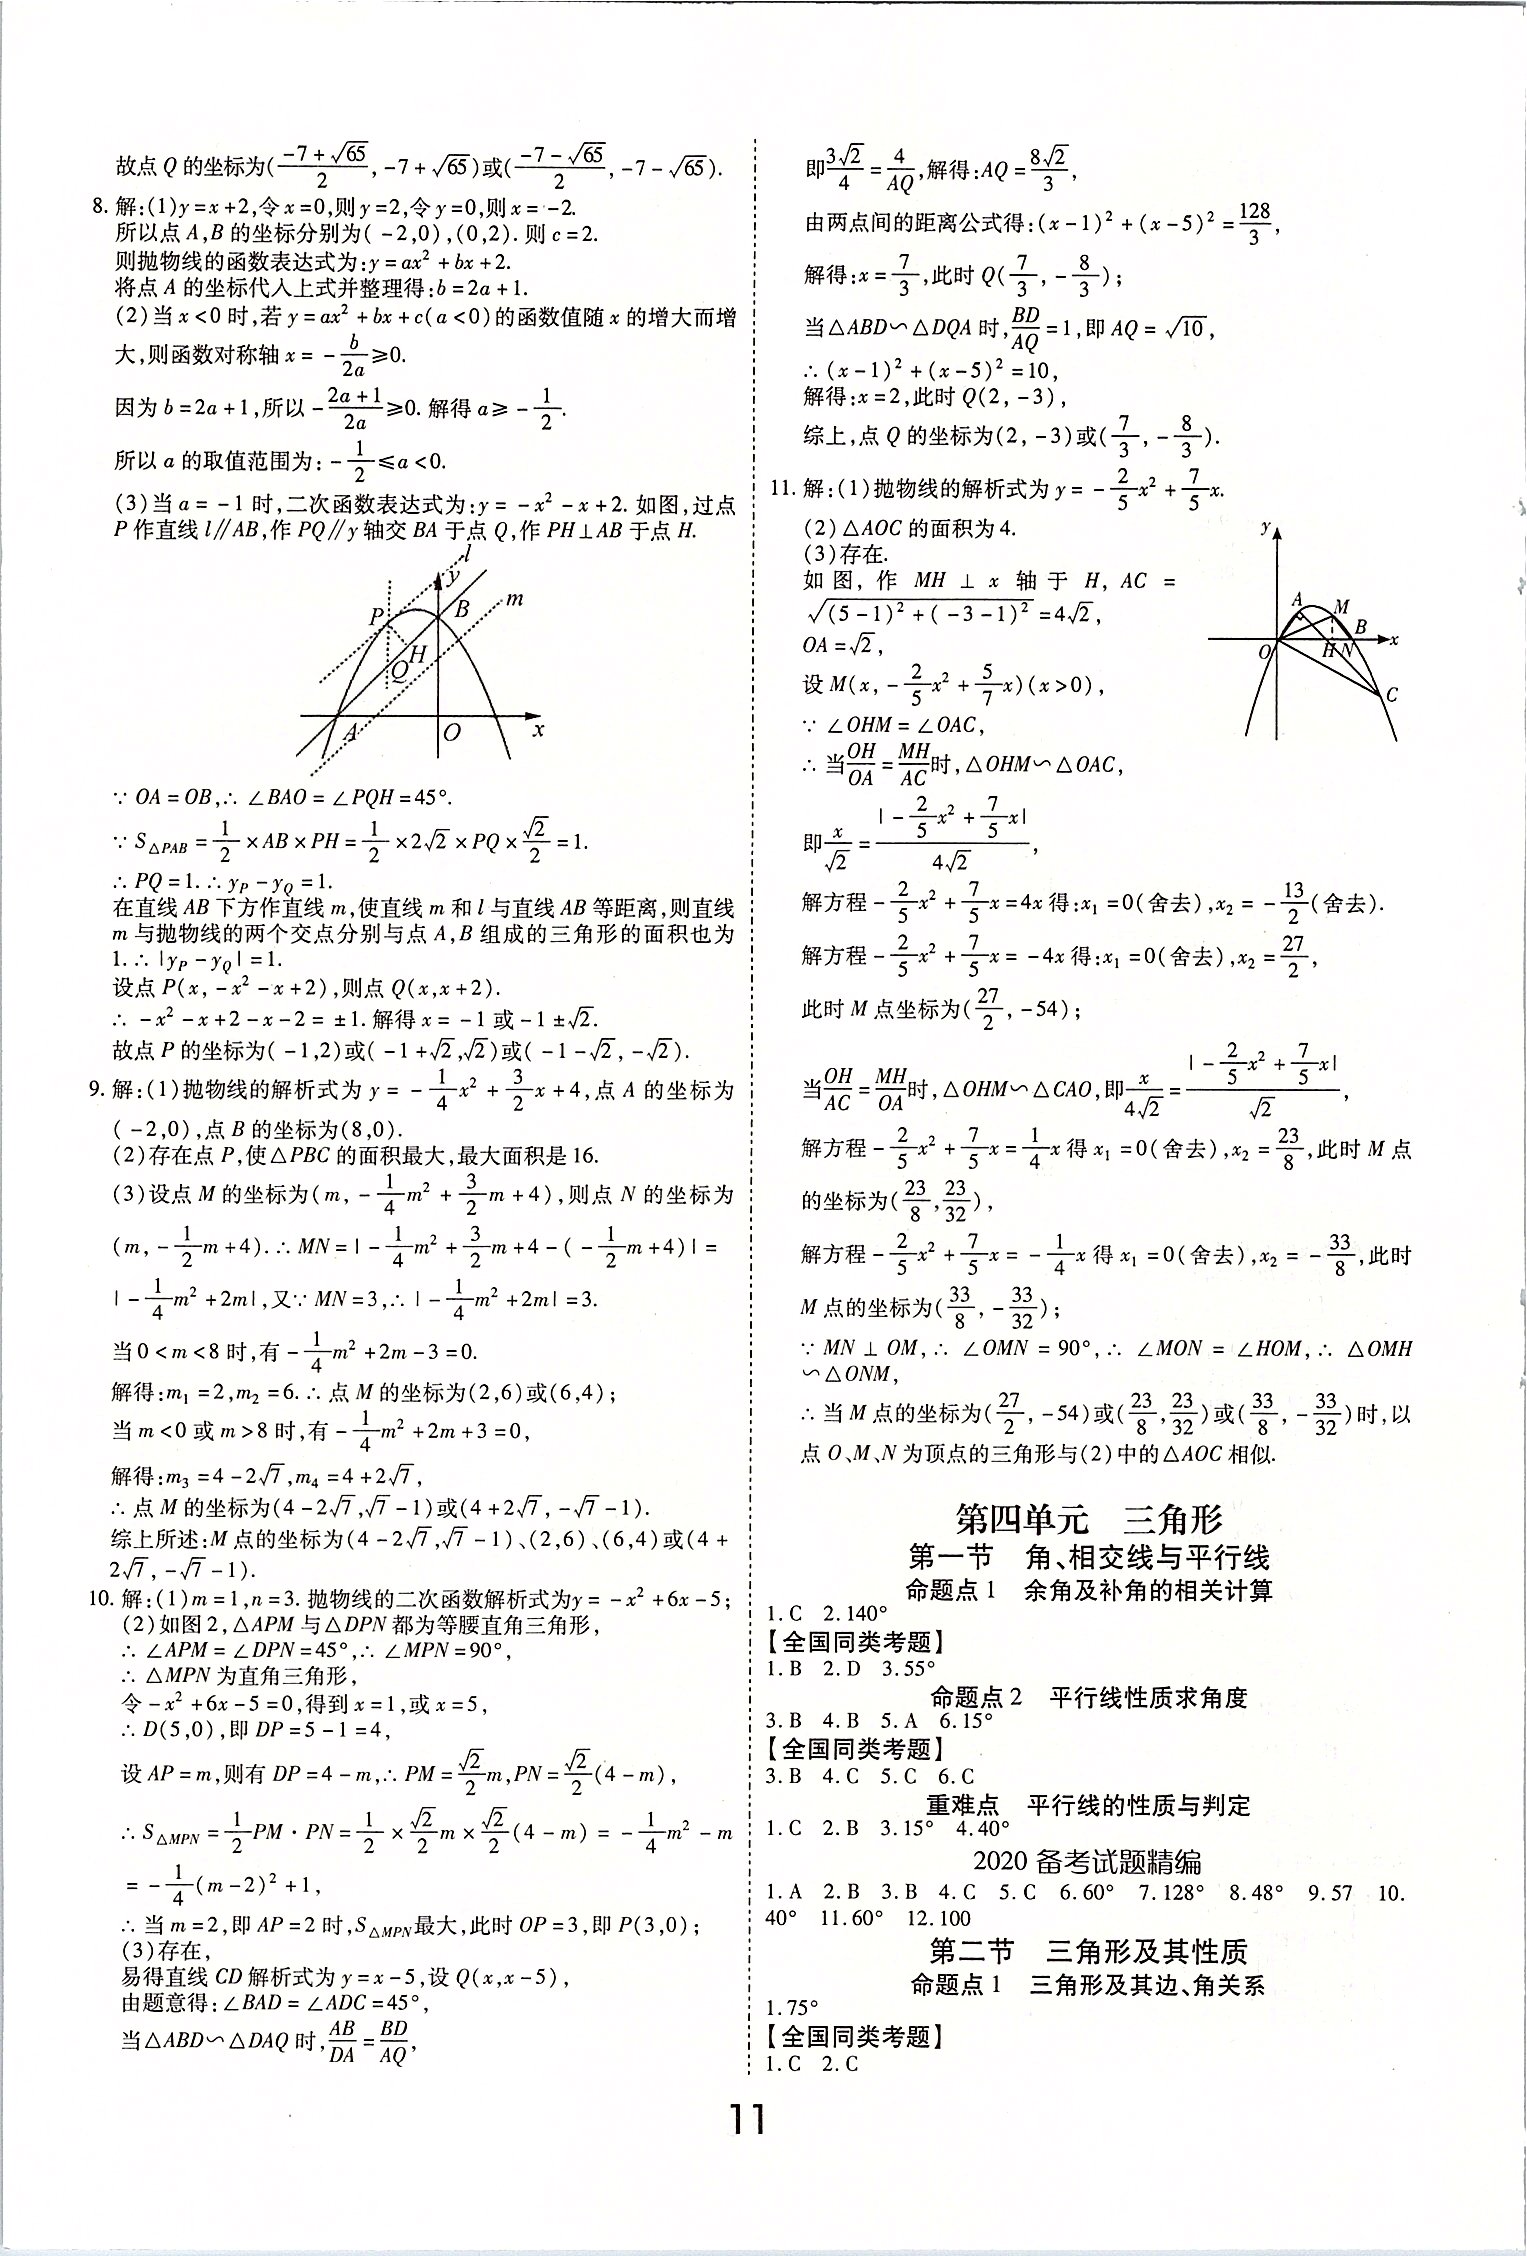 故点 Q 的坐标为((-7+√65)/2, -7+√65)或((-7-√65)/2, -7-√65).
8. 解:(1)y=x+2,令x=0,则y=2,令y=0,则x=-2.
所以点 A,B 的坐标分别为(-2,0),(0,2).则c=2.
则抛物线的函数表达式为:y=ax²+bx+2.
将点 A 的坐标代入上式并整理得:b=2a+1.
(2)当x<0时,若y=ax²+bx+c(a<0)的函数值随x的增大而增
大,则函数对称轴x=-b/2a≥0.
因为b=2a+1,所以-(2a+1)/2a≥0.解得a≥-1/2.
所以a的取值范围为:-1/2≤a<0.
(3)当a=-1时,二次函数表达式为:y=-x²-x+2.如图,过点
P作直线l∥AB,作PQ∥y轴交BA于点Q,作PH⊥AB于点H.
l
y
P
B
m
H
Q
A
O
x
∵OA=OB,∴∠BAO=∠PQH=45°.
∵S△PAB=1/2×AB×PH=1/2×2√2×PQ×√2/2=1.
∴PQ=1.∴yP-yQ=1.
在直线AB下方作直线m,使直线m和l与直线AB等距离,则直线
m与抛物线的两个交点分别与点A,B组成的三角形的面积也为
1.∴|yP-yQ|=1.
设点P(x,-x²-x+2),则点Q(x,x+2).
∴-x²-x+2-x-2=±1.解得x=-1或-1±√2.
故点P的坐标为(-1,2)或(-1+√2,√2)或(-1-√2,-√2).
9. 解:(1)抛物线的解析式为y=-1/4x²+3/2x+4,点A的坐标为
(-2,0),点B的坐标为(8,0).
(2)存在点P,使△PBC的面积最大,最大面积是16.
(3)设点M的坐标为(m,-1/4m²+3/2m+4),则点N的坐标为
(m,-1/2m+4).∴MN=|-1/4m²+3/2m+4-(-1/2m+4)|=
|-1/4m²+2m|,又∵MN=3,∴|-1/4m²+2m|=3.
当0<m<8时,有-1/4m²+2m-3=0.
解得:m₁=2,m₂=6.∴点M的坐标为(2,6)或(6,4);
当m<0或m>8时,有-1/4m²+2m+3=0,
解得:m₃=4-2√7,m₄=4+2√7,
∴点M的坐标为(4-2√7,√7-1)或(4+2√7,-√7-1).
综上所述:M点的坐标为(4-2√7,√7-1)、(2,6)、(6,4)或(4+
2√7,-√7-1).
10. 解:(1)m=1,n=3.抛物线的二次函数解析式为y=-x²+6x-5;
(2)如图2,△APM与△DPN都为等腰直角三角形,
∴∠APM=∠DPN=45°,∴∠MPN=90°,
∴△MPN为直角三角形,
令-x²+6x-5=0,得到x=1,或x=5,
∴D(5,0),即DP=5-1=4,
设AP=m,则有DP=4-m,∴PM=√2/2m,PN=√2/2(4-m),
∴S△MPN=1/2PM·PN=1/2×√2/2m×√2/2(4-m)=-1/4m²-m
=-1/4(m-2)²+1,
∴当m=2,即AP=2时,S△MPN最大,此时OP=3,即P(3,0);
(3)存在,
易得直线CD解析式为y=x-5,设Q(x,x-5),
由题意得:∠BAD=∠ADC=45°,
当△ABD∽△DAQ时,AB/DA=BD/AQ,
即3√2/4=4/AQ,解得:AQ=8√2/3,
由两点间的距离公式得:(x-1)²+(x-5)²=128/3,
解得:x=7/3,此时Q(7/3,-8/3);
当△ABD∽△DQA时,BD/AQ=1,即AQ=√10,
∴(x-1)²+(x-5)²=10,
解得:x=2,此时Q(2,-3),
综上,点Q的坐标为(2,-3)或(7/3,-8/3).
11. 解:(1)抛物线的解析式为y=-2/5x²+7/5x.
(2)△AOC的面积为4.
(3)存在.
如图,作MH⊥x轴于H,AC=
√((5-1)²+(-3-1)²)=4√2,
OA=√2,
设M(x,-2/5x²+5/7x)(x>0),
∵∠OHM=∠OAC,
∴当OH/OA=MH/AC时,△OHM∽△OAC,
y
A
M
B
O
H
N
x
C
即x/√2=|-2/5x²+7/5x|/4√2,
解方程-2/5x²+7/5x=4x得:x₁=0(舍去),x₂=-13/2(舍去).
解方程-2/5x²+7/5x=-4x得:x₁=0(舍去),x₂=27/2,
此时M点坐标为(27/2,-54);
当OH/AC=MH/OA时,△OHM∽△CAO,即x/4√2=|-2/5x²+7/5x|/√2,
解方程-2/5x²+7/5x=1/4x得x₁=0(舍去),x₂=23/8,此时M点
的坐标为(23/8,23/32),
解方程-2/5x²+7/5x=-1/4x得x₁=0(舍去),x₂=-33/8,此时
M点的坐标为(33/8,-33/32);
∵MN⊥OM,∴∠OMN=90°,∴∠MON=∠HOM,∴△OMH
∽△ONM,
∴当M点的坐标为(27/2,-54)或(23/8,23/32)或(33/8,-33/32)时,以
点O、M、N为顶点的三角形与(2)中的△AOC相似.
第四单元 三角形
第一节 角、相交线与平行线
命题点1 余角及补角的相关计算
1.C 2.140°
【全国同类考题】
1.B 2.D 3.55°
命题点2 平行线性质求角度
3.B 4.B 5.A 6.15°
【全国同类考题】
3.B 4.C 5.C 6.C
重难点 平行线的性质与判定
1.C 2.B 3.15° 4.40°
2020备考试题精编
1.A 2.B 3.B 4.C 5.C 6.60° 7.128° 8.48° 9.57 10.
40° 11.60° 12.100
第二节 三角形及其性质
命题点1 三角形及其边、角关系
1.75°
【全国同类考题】
1.C 2.C
11